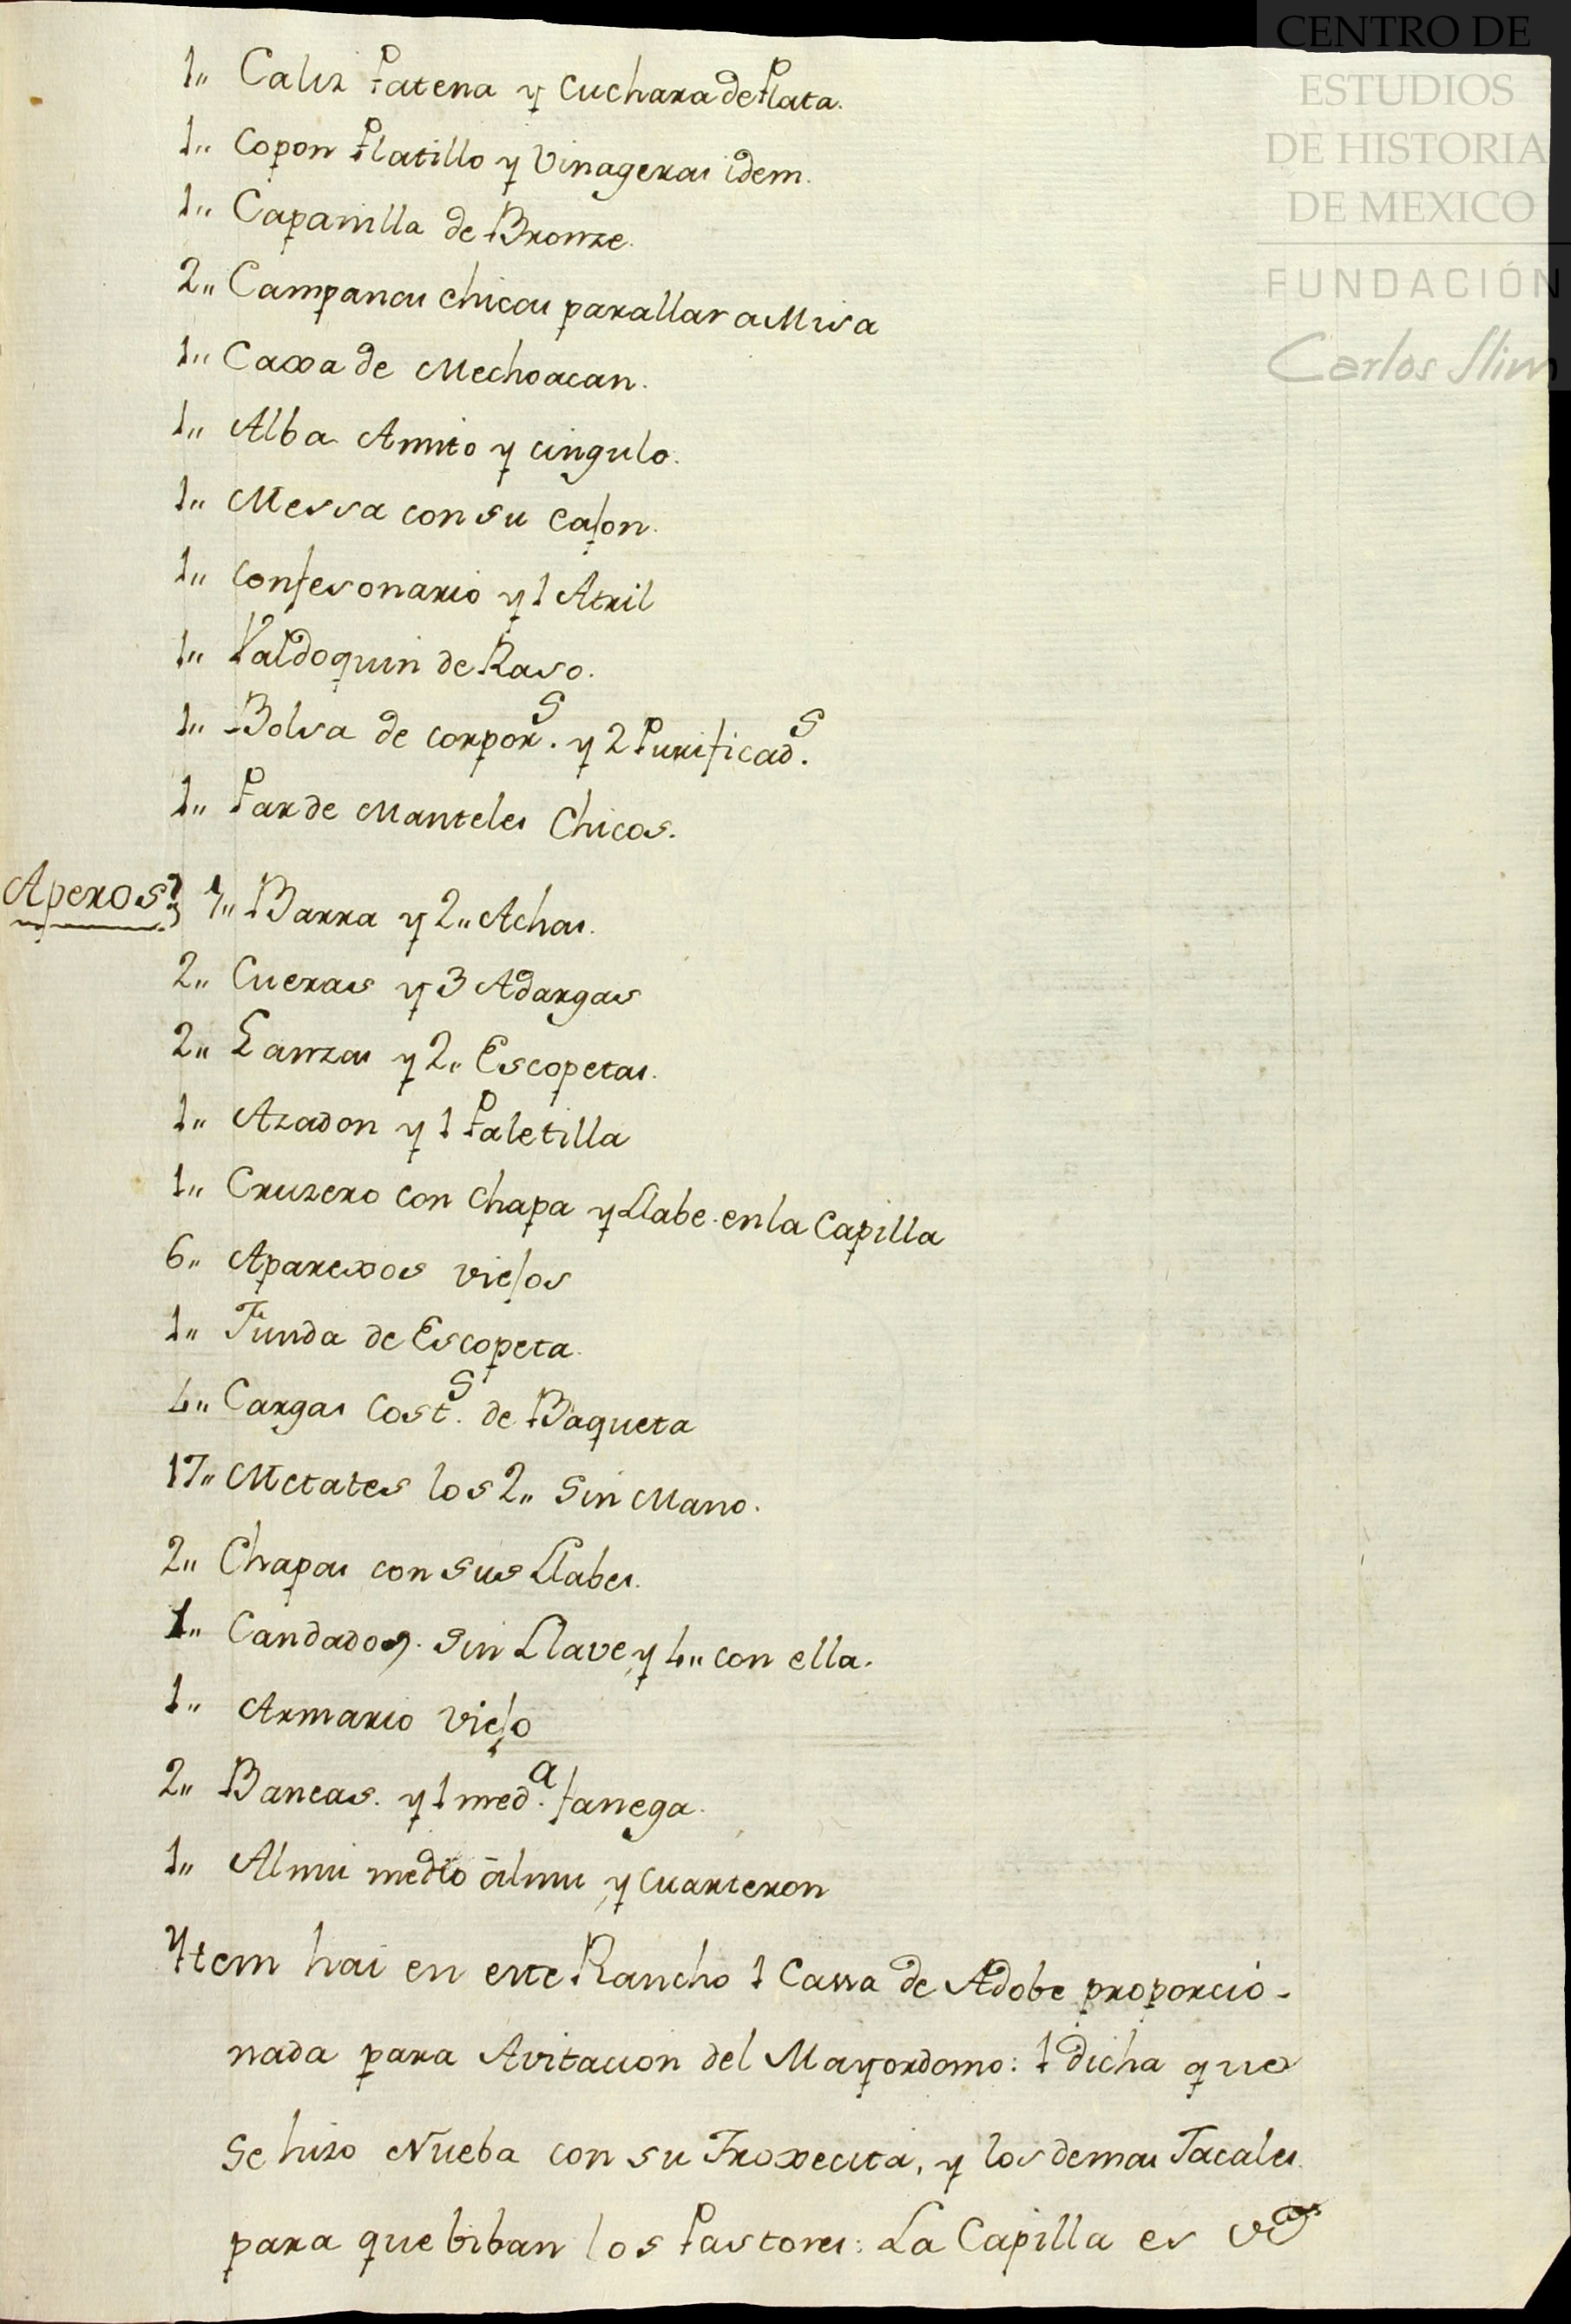 CENTRO DE
ESTUDIOS
DE HISTORIA
DE MEXICO
FUNDACIÓN
Carlos Slim
1,, Caliz Patena y Cuchara de Plata.
1,, Copon Platillo y Vinageras idem.
1,, Capanilla de Bronze.
2,, Campanas chicas para llar a Misa
1,, Caxa de Mechoacan.
1,, Alba Amito y cingulo.
1,, Messa con su cajon.
1,, Confesonario y 1 Atril
1,, Valdoquin de Raso.
1,, Bolsa de corpor.s y 2 Purificad.s
1,, Par de Manteles Chicos.
Aperos 1,, Barra y 2,, Achas.
2,, Cueras y 3 Adargas
2,, Lanzas y 2,, Escopetas.
1,, Azadon y 1 Paletilla
1,, Cruzero con Chapa y Llabe. en la Capilla
6,, Aparexos viejos
1,, Funda de Escopeta.
4,, Cargas Cost.s de Baqueta
17,, Metates los 2,, Sin Mano.
2,, Chapas con sus Llabes.
1,, Candado. Sin Llave, y 4,, con ella.
1,, Armario viejo
2,, Bancas. y 1 med.a fanega.
1,, Almu medio almu y cuarteron
Ytem hai en este Rancho 1 Cassa de Adobe proporcio-
nada para Avitacion del Mayordomo: 1 dicha que
Se hizo Nueba con su Troxecita, y los demas Jacales
para que biban los Pastores: La Capilla es